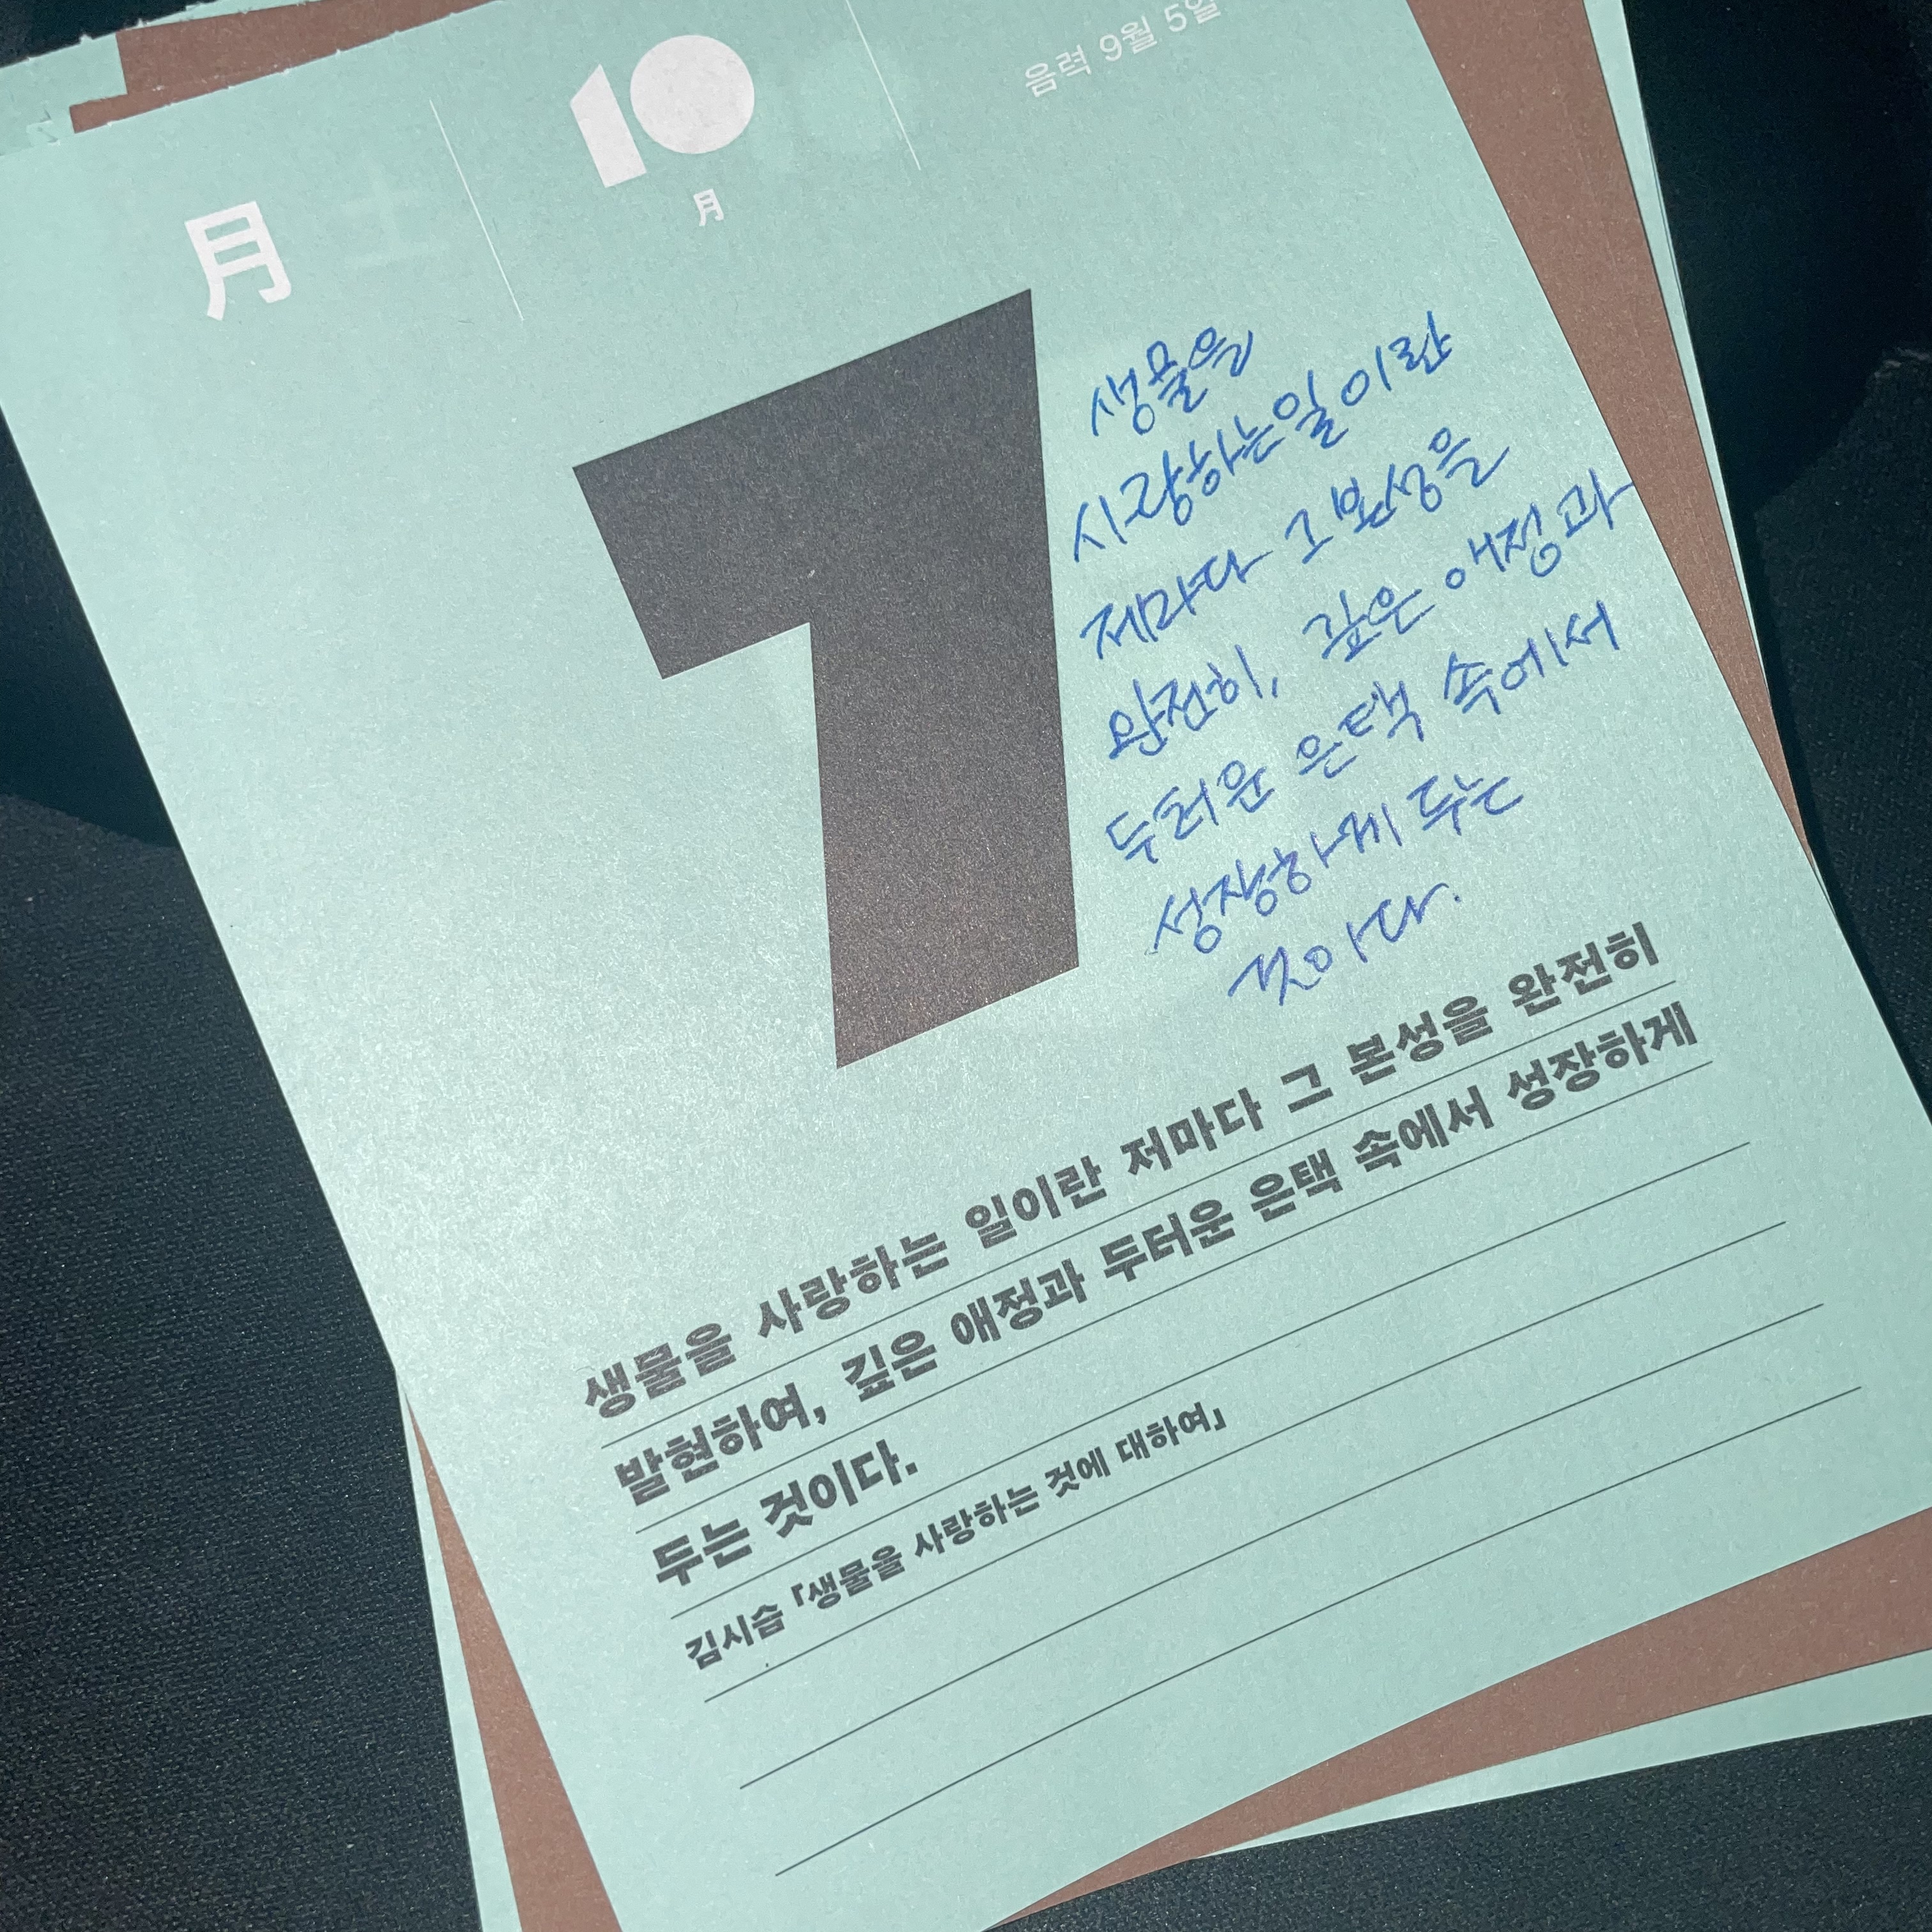 月
10
月
음력 9월 5일
7
생물을
사랑하는일이란
저마다 그 본성을
완전히, 깊은 애정과
두터운 은택 속에서
성장하게 두는
것이다.
생물을 사랑하는 일이란 저마다 그 본성을 완전히
발현하여, 깊은 애정과 두터운 은택 속에서 성장하게
두는 것이다.
김시습 「생물을 사랑하는 것에 대하여」